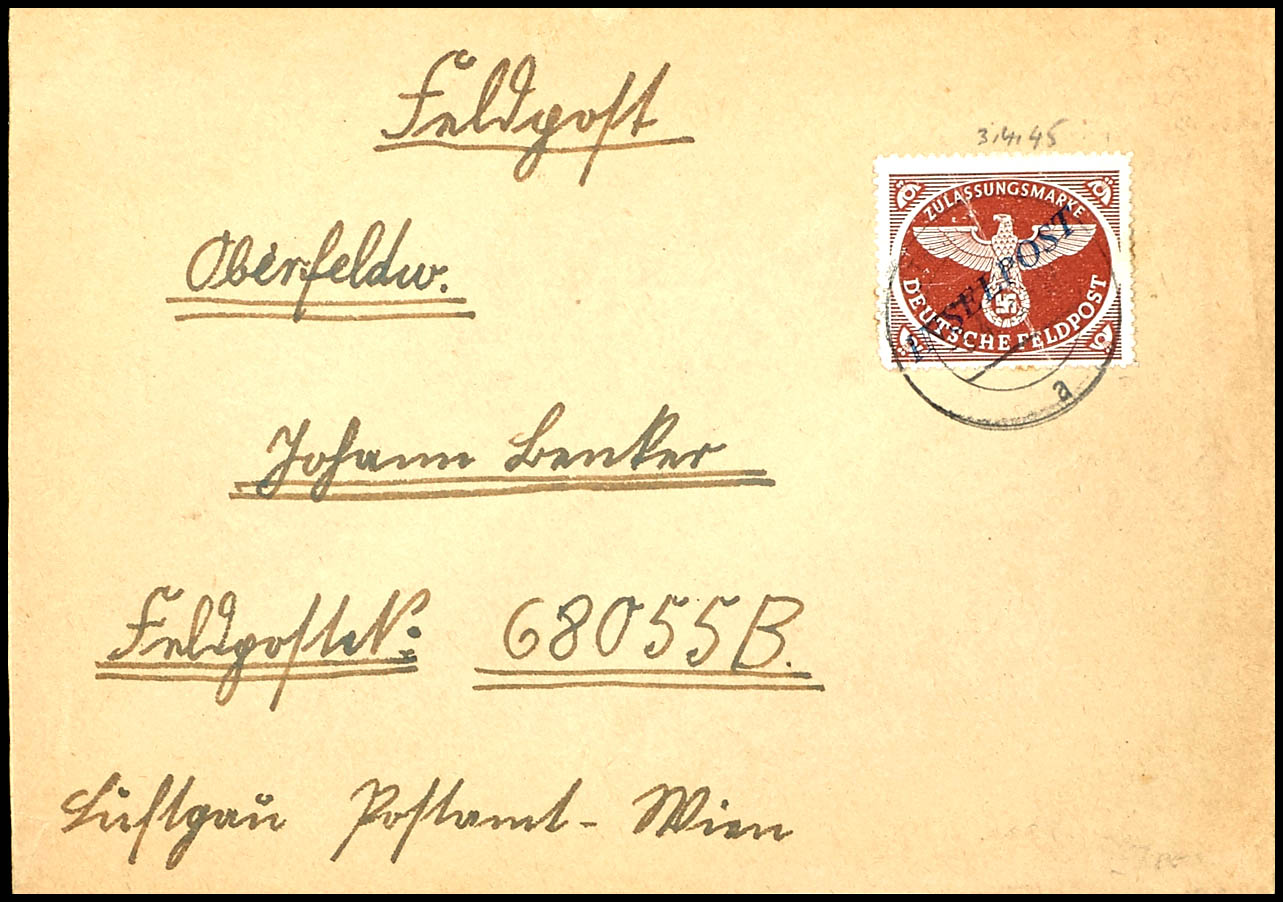 Feldpost
3.4.45
ZULASSUNGSMARKE
INSELPOST
DEUTSCHE FELDPOST
a
Oberfeldw.
Johann Benker
Feldpost N: 68055B.
Luftgau Postamt - Wien